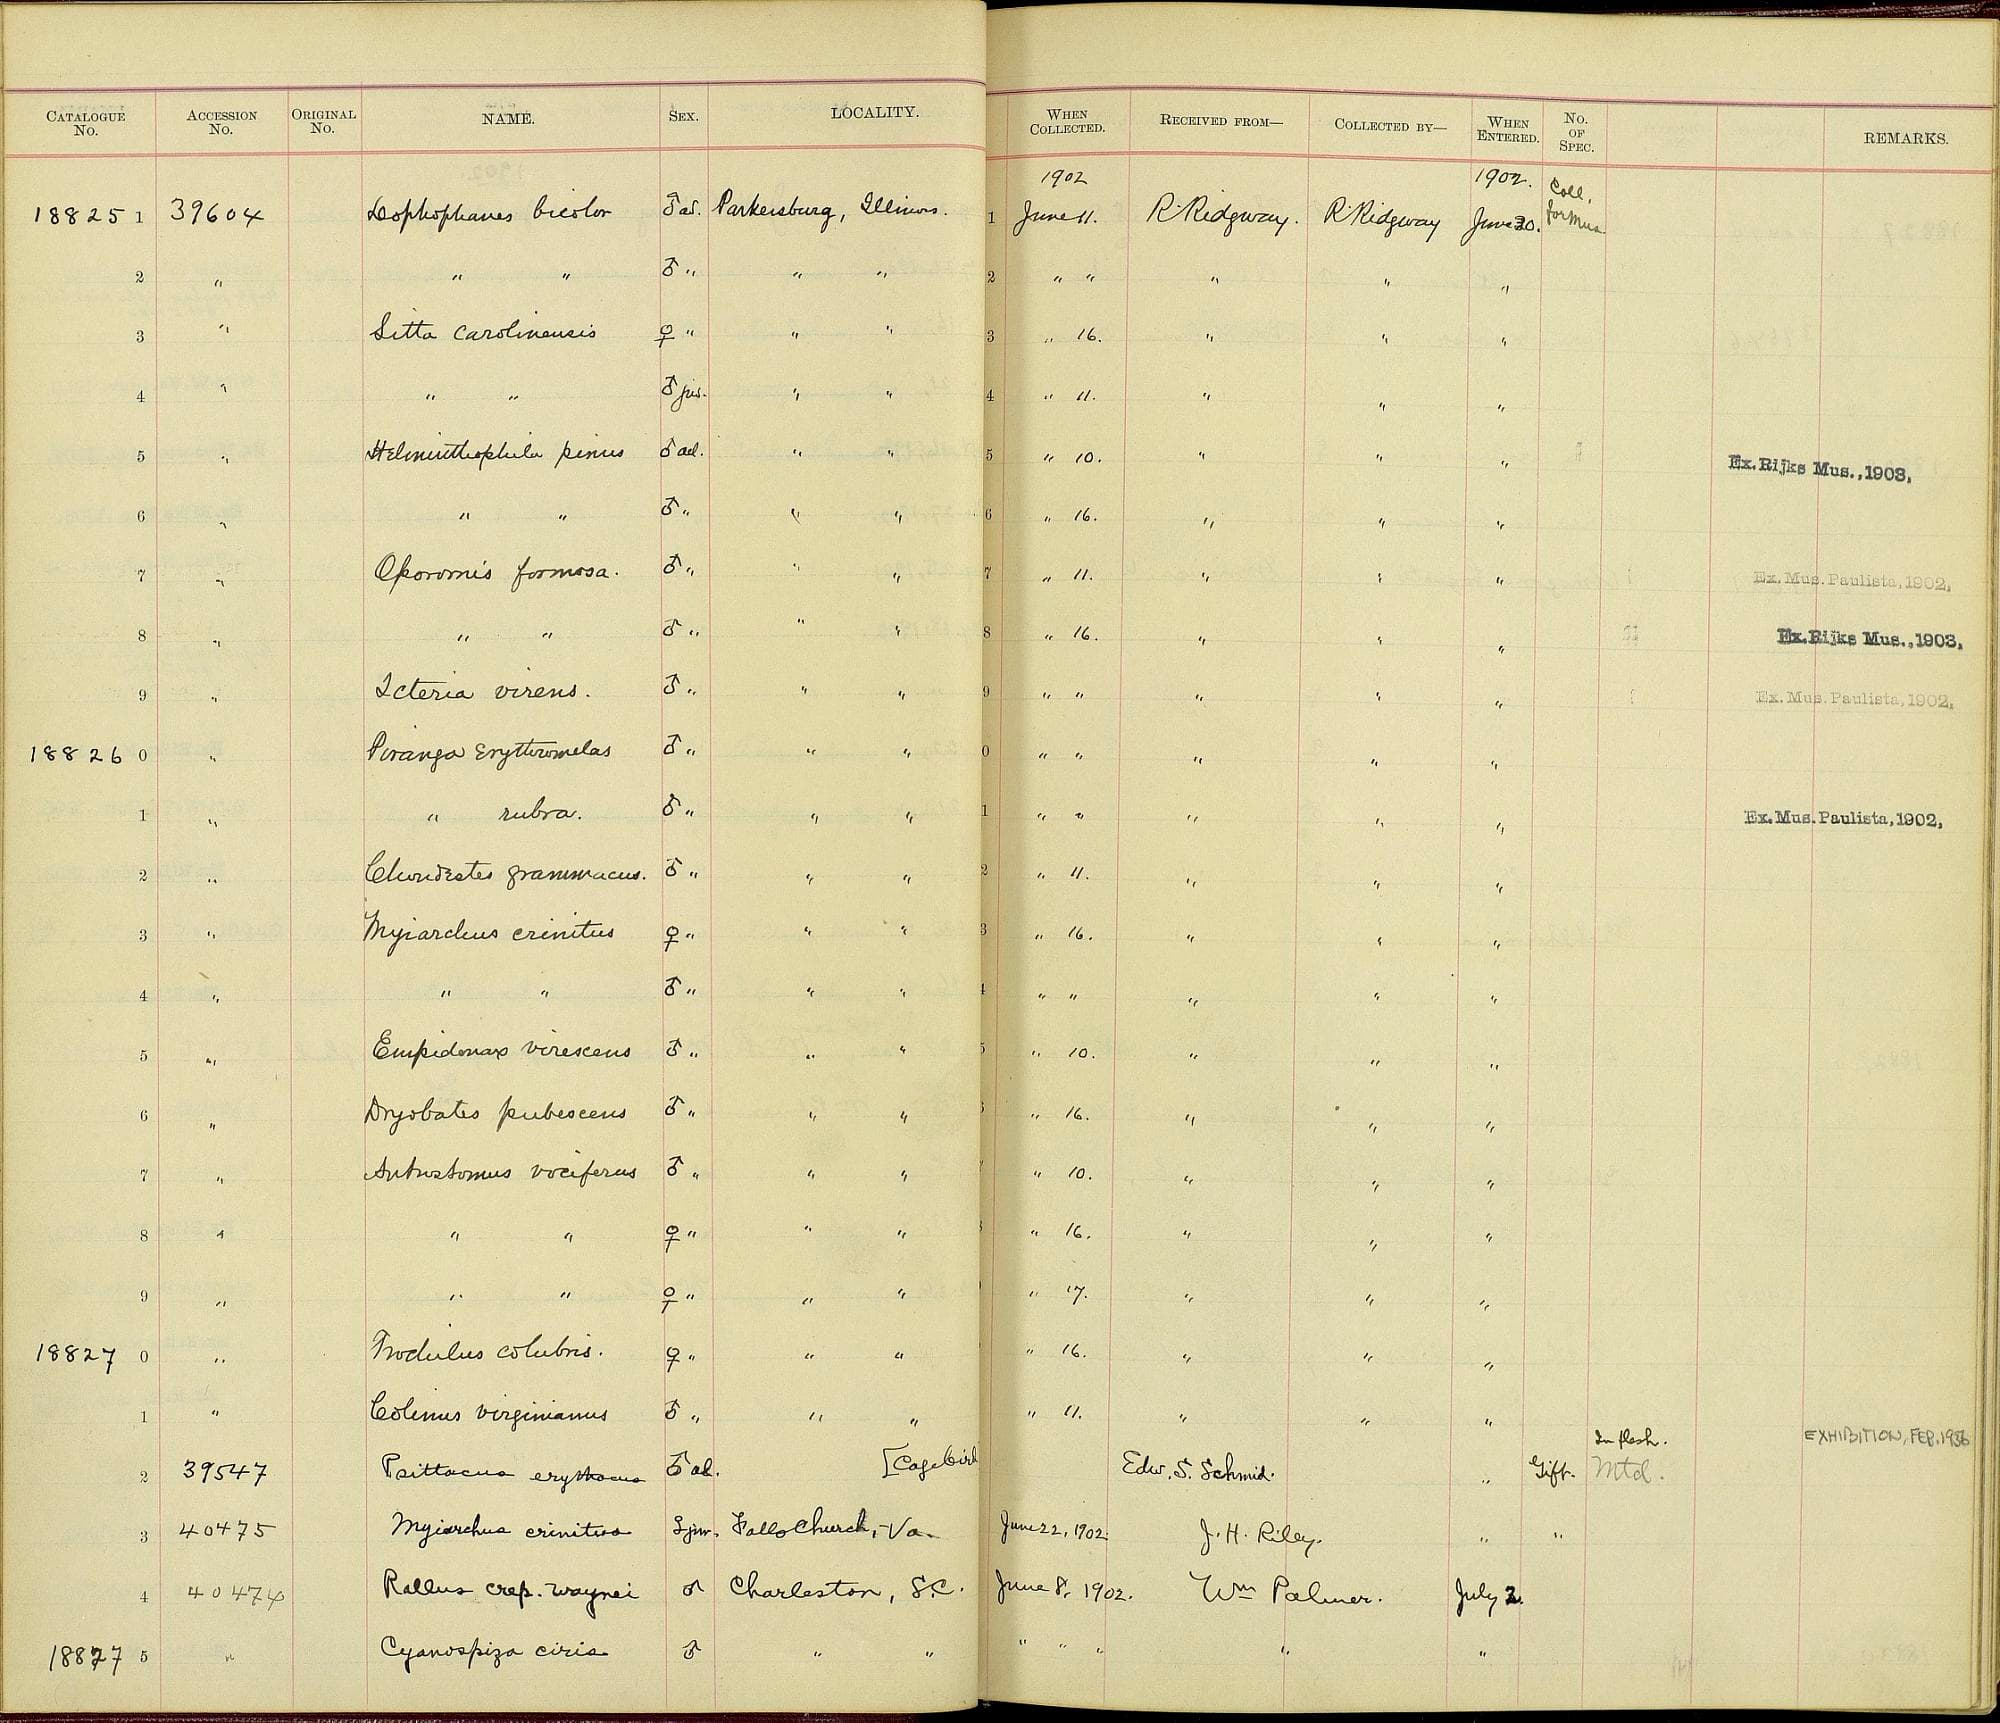 CATALOGUE No. ACCESSION No. ORIGINAL No. NAME. SEX. LOCALITY. WHEN COLLECTED. RECEIVED FROM— COLLECTED BY— WHEN ENTERED. No. OF SPEC. REMARKS.
1902 1902. Coll.
18825 1 39604 Lophophanes bicolor ♂ ad. Parkersburg, Illinois. 1 June 11. R. Ridgway. R. Ridgway June 30. for Mus.
2 " " " ♂ " " " 2 " " " " "
3 " Sitta carolinensis ♀ " " " 3 " 16. " " "
4 " " " ♂ juv. " " 4 " 11. " " "
5 " Helminthophila pinus ♂ ad. " " 5 " 10. " " " Ex. Rijks Mus., 1903.
6 " " " ♂ " " " 6 " 16. " " "
7 " Oporornis formosa. ♂ " " " 7 " 11. " " " Ex. Mus. Paulista, 1902.
8 " " " ♂ " " " 8 " 16. " " " Ex. Rijks Mus., 1903.
9 " Icteria virens. ♂ " " " 9 " " " " " Ex. Mus. Paulista, 1902.
18826 0 " Piranga erythromelas ♂ " " " 0 " " " " "
1 " " rubra. ♂ " " " 1 " " " " " Ex. Mus. Paulista, 1902.
2 " Chondestes grammacus. ♂ " " " 2 " 11. " " "
3 " Myiarchus crinitus ♀ " " " 3 " 16. " " "
4 " " " ♂ " " " 4 " " " " "
5 " Empidonax virescens ♂ " " " 5 " 10. " " "
6 " Dryobates pubescens ♂ " " " " 16. " " "
7 " Antrostomus vociferus ♂ " " " " 10. " " "
8 " " " ♀ " " " " 16. " " "
9 " " " ♀ " " " " 17. " " "
18827 0 " Trochilus colubris. ♀ " " " " 16. " " "
1 " Colinus virginianus ♂ " " " " 11. " " "
In flesh. EXHIBITION, FEB. 1956
2 39547 Psittacus erythacus ♂ ad. [Cage bird Edw. S. Schmid. " Gift. Mtd.
3 40475 Myiarchus crinitus juv. Falls Church, Va. June 22, 1902. J. H. Riley. " "
4 40474 Rallus crep. waynei ♂ Charleston, S.C. June 8, 1902. Wm Palmer. July 2.
18827 5 " Cyanospiza ciris ♂ " " " " " " "